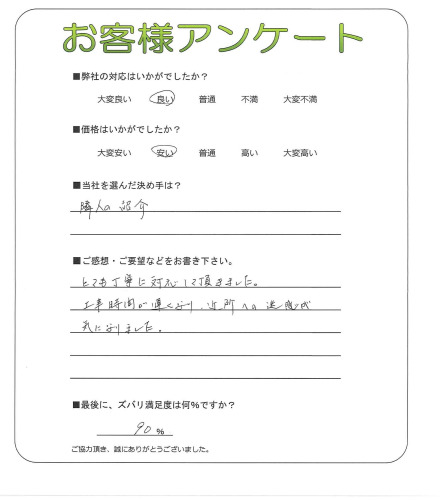 お客様アンケート
■弊社の対応はいかがでしたか？
大変良い 良い 普通 不満 大変不満
■価格はいかがでしたか？
大変安い 安い 普通 高い 大変高い
■当社を選んだ決め手は？
隣人の紹介
■ご感想・ご要望などをお書き下さい。
とても丁寧に対応して頂きました。
工事時間が遅くなり、近所への迷惑が
気になりました。
■最後に、ズバリ満足度は何%ですか？
90 %
ご協力頂き、誠にありがとうございました。